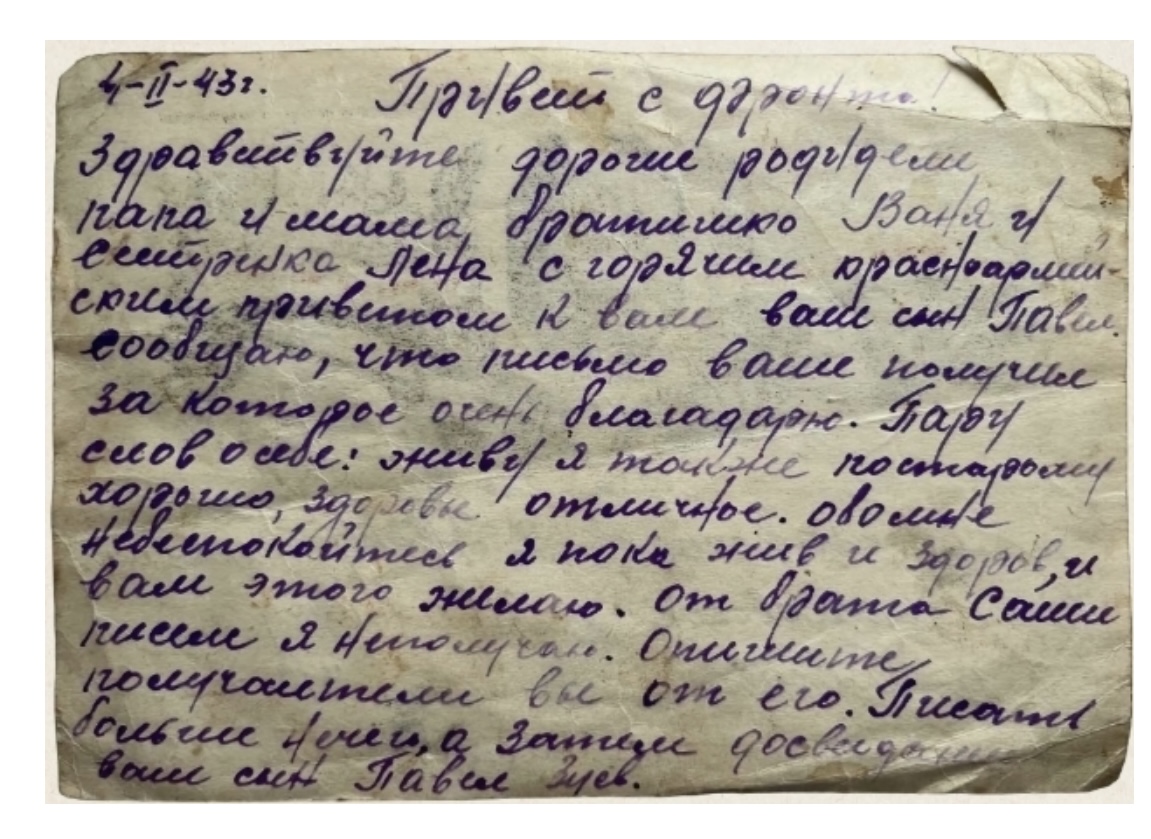 4-II-43г. Привет с фронта!
Здравствуйте дорогие родидели
папа и мама, братишко Ваня и
сестренка Лена с горячим красноармей-
ским приветом к вам ваш сын Павел.
Сообщаю, что письмо ваше получил
за которое очень благадарю. Пару
слов о себе: живу я также постарому
хорошо, здоровье отличное. обо мне
небеспокойтесь я пока жив и здоров, и
вам этого желаю. От брата Саши
писем я неполучаю. Опишите,
получаители вы от его. Писать
больше нечего, а затем досвидания
ваш сын Павел Зуев.